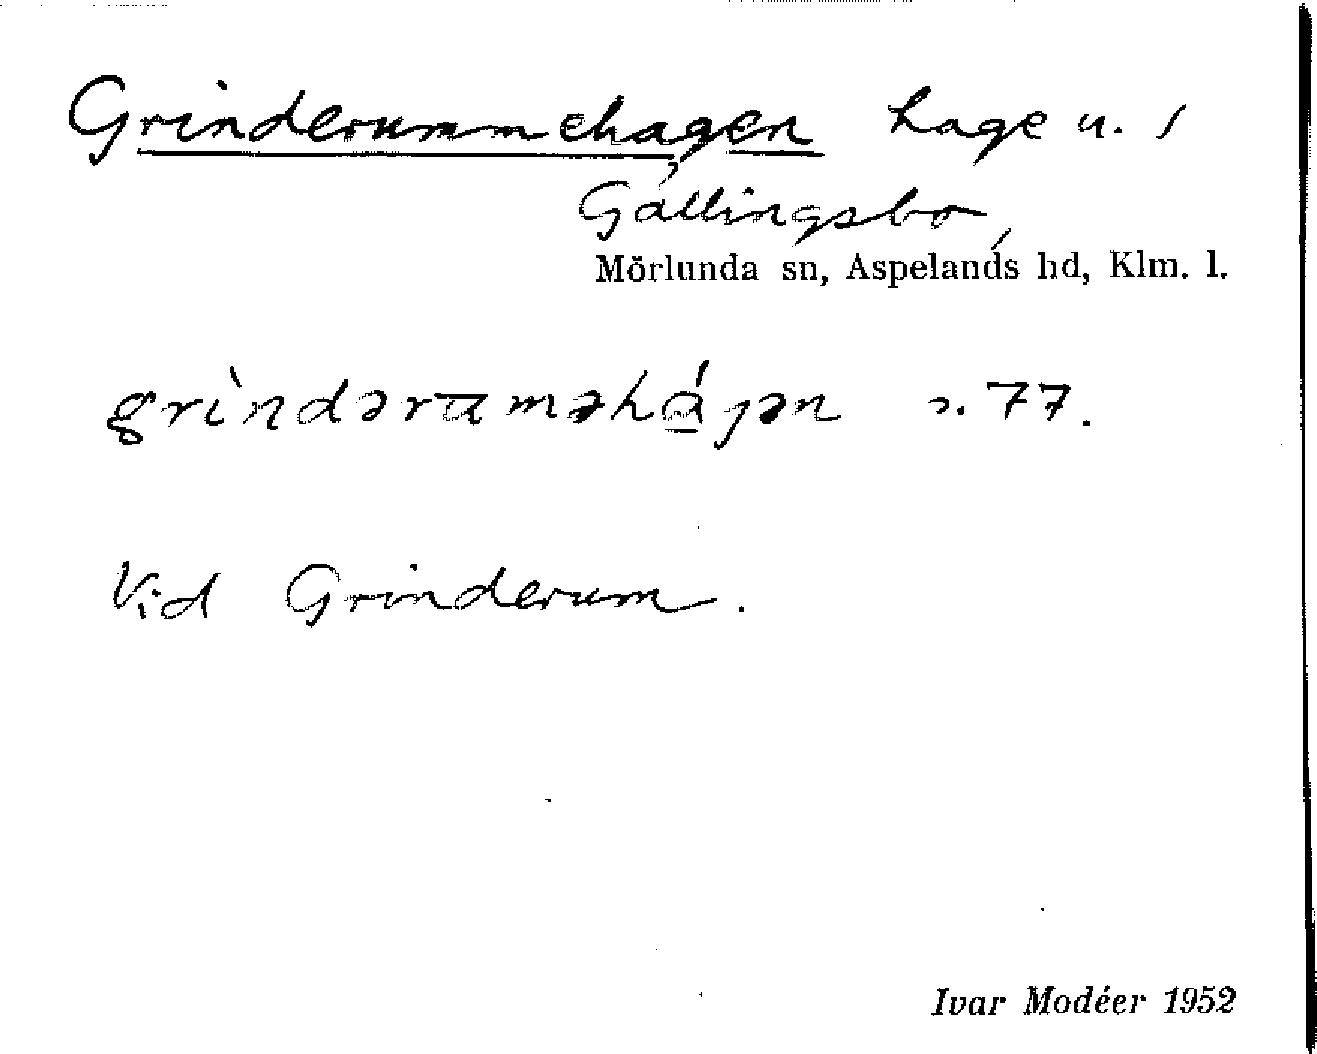 Grinderummehagen hage u. 1
Gållingsbo,
Mörlunda sn, Aspelands hd, Klm. l.
grìndərumәhágən s. 77.
Vid Grinderum.
Ivar Modéer 1952